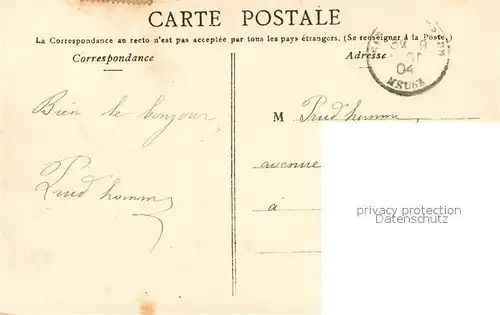 CARTE POSTALE
La Correspondance au recto n'est pas acceptée par tous les pays étrangers. (Se renseigner à la Poste.)
Correspondance
Adresse
04
Bien le bonjour
Prud'homme
M Prud'homme
avenue
à
privacy protection
www.oldthing.de